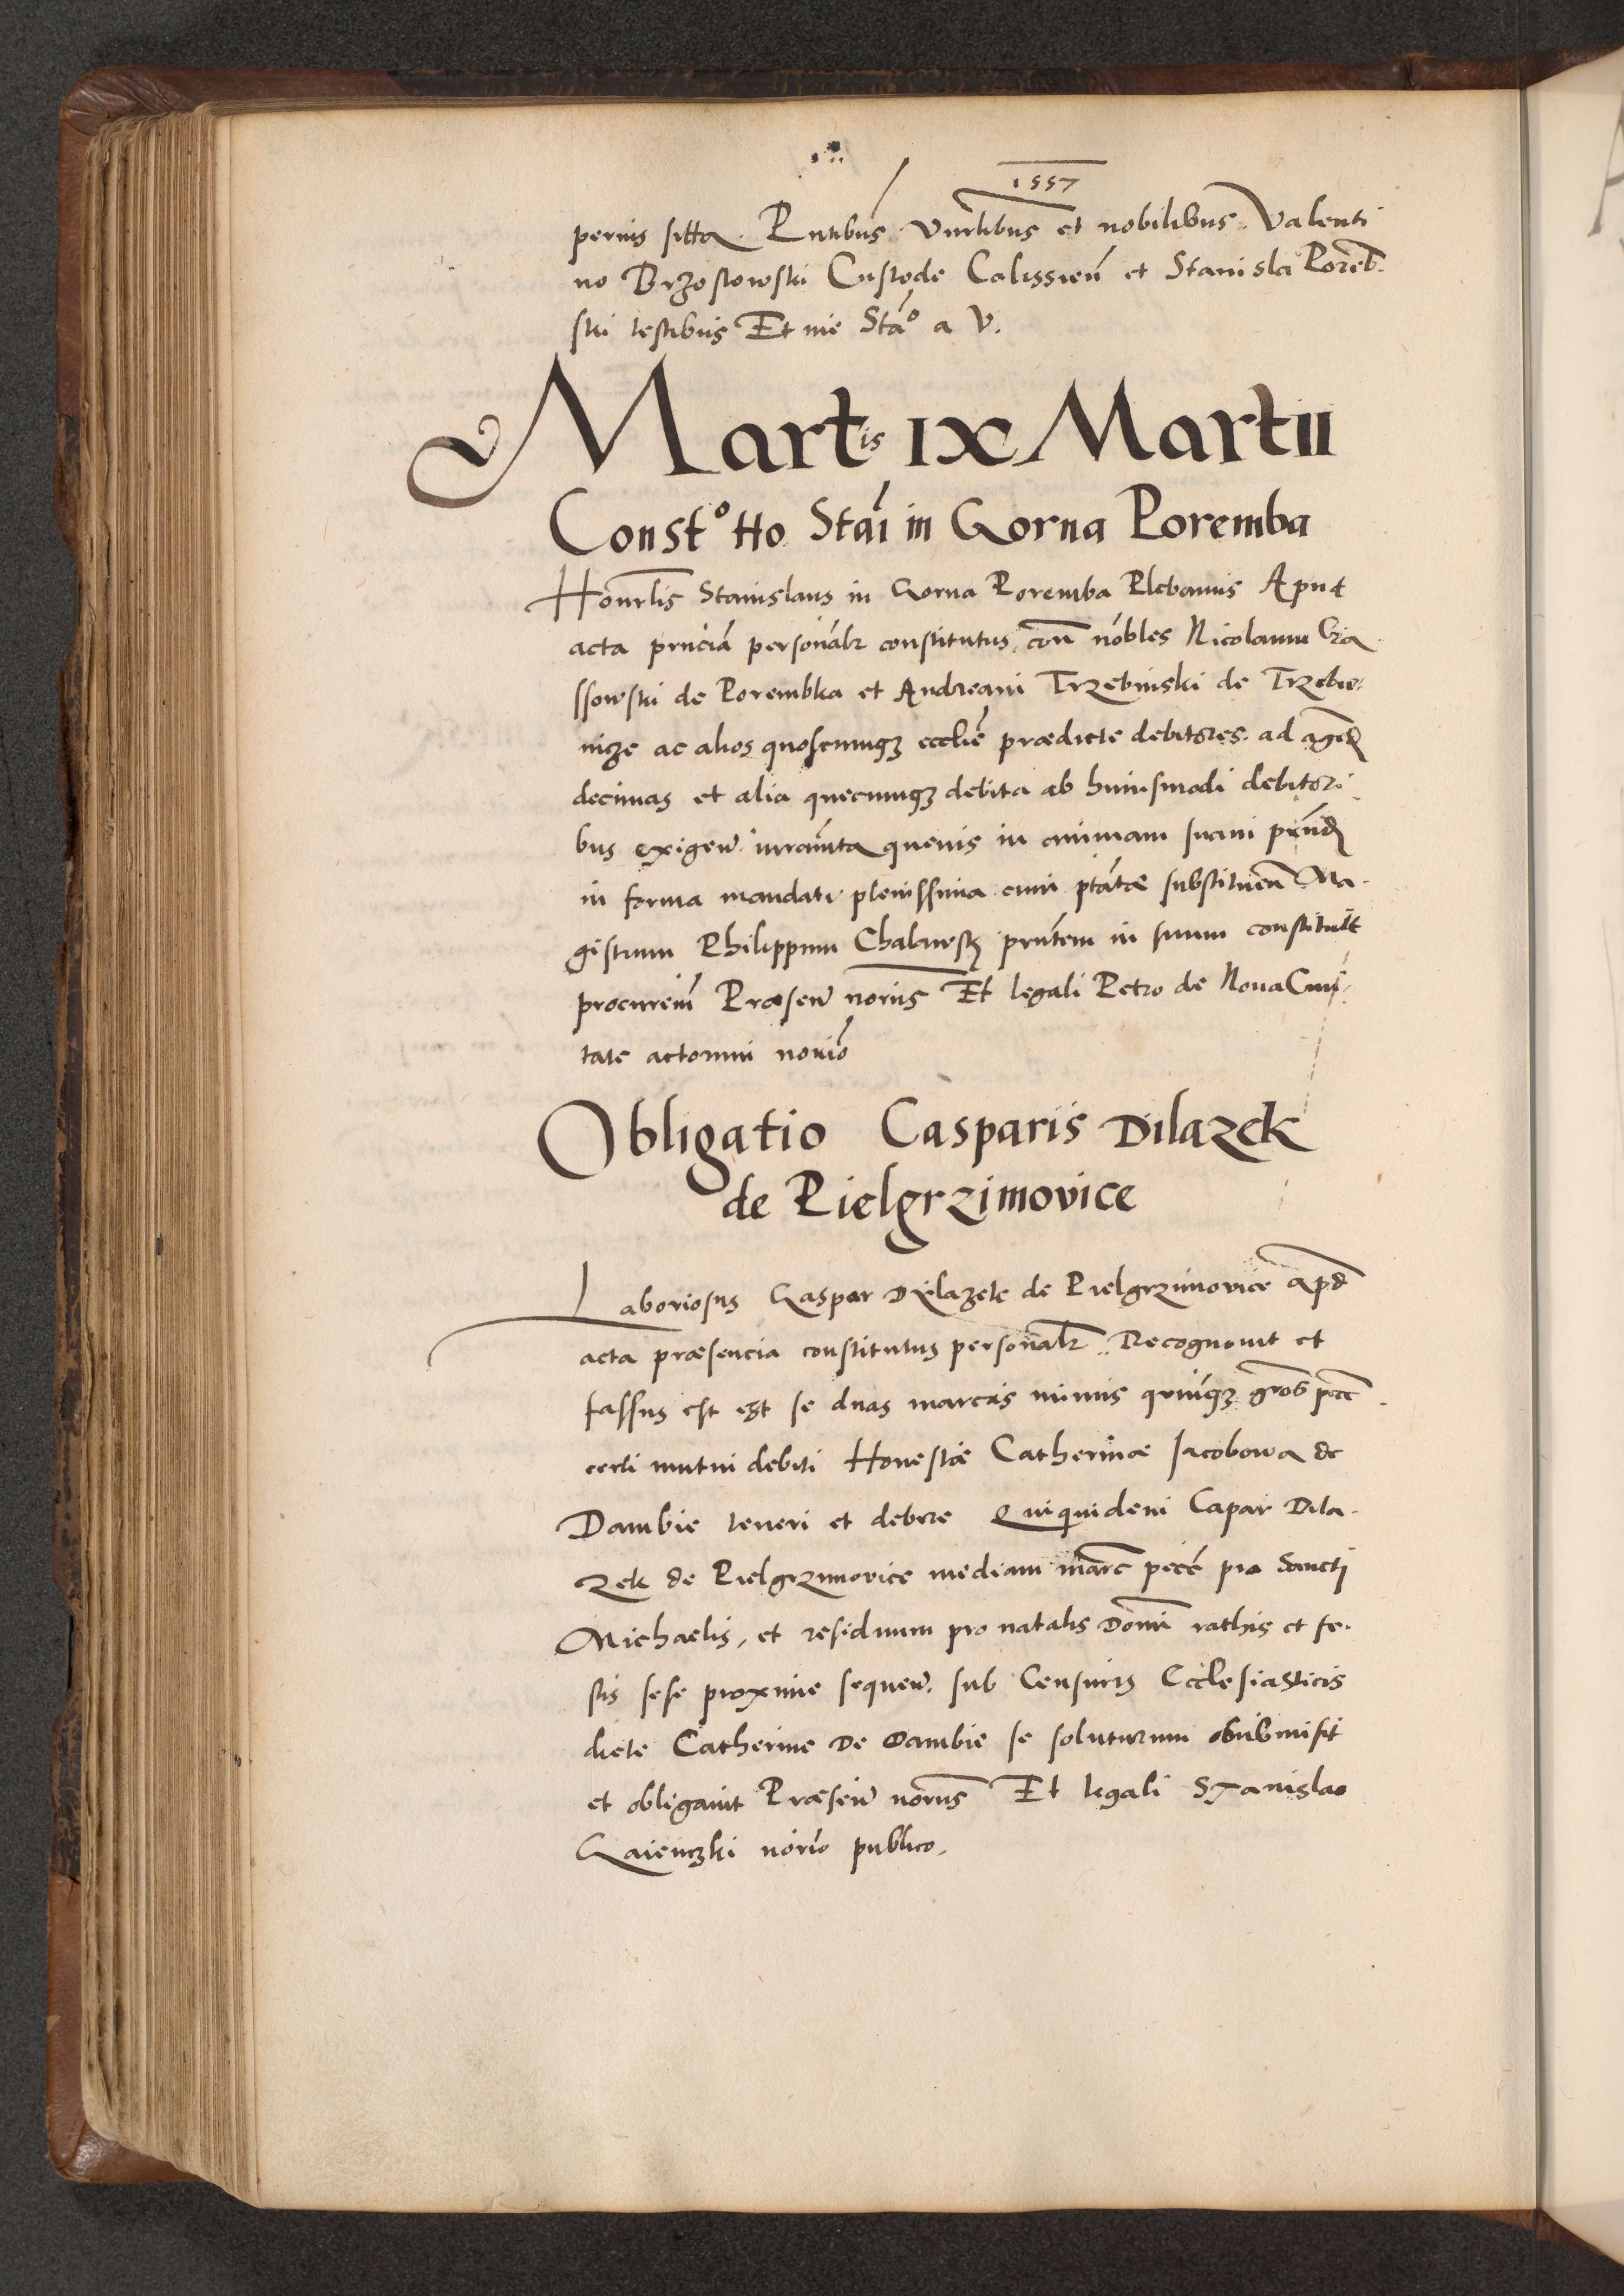 1557
perius sitta Pntibus Vnrlibus et nobilibus Valenti
no Brzostowski Custode Calissien et Stanisla Poreb
ski testibus Et me Sta° a V.
Martis IX Martii
Const° Ho Stai in Gorna Poremba
Honrlis Stanislaus in Gorna Poremba Plebanus Apud
acta pnciã personalr constitutus, con nobles Nicolaum Gra
ssowski de Porembka et Andream Trzebinski de Trzebie
nicze ac alios quoscumqz ecclie prædicte debitores ad agend
decimas et alia quecumqz debita ab huiusmodi debitori
bus exigen iuramta quevis in animam suam prestnd
in forma mandati plenissima cum ptãtæ substituen Ma
gistrum Philippum pntem in suum constituit
procurem Præsen noriis Et legali Petro de Nova Civi
tate actorum norio
Obligatio Casparis Dilazek
de Pielgrzimovice
Laboriosus Gaspar Dilazek de Pielgrzimovice apd
acta præsencia constitutus personalr Recognovit et
fassus est se duas marcas minus quinqz gros pecc
certi mutui debiti Honestæ Catherinæ Jacobowa de
Dambie teneri et debere Quiquidem Capar Dila
zek de Pielgrzimovice mediam marc pecc pro Sancti
Michaelis, et residuum pro natalis Domi rathis et fe
stis sese proxime sequen. sub Censuris Ecclesiasticis
dicte Catherine De Dambie se soluturum submisit
et obligavit Præsen noriis Et legali Stanislao
Gaienczki norio publico.